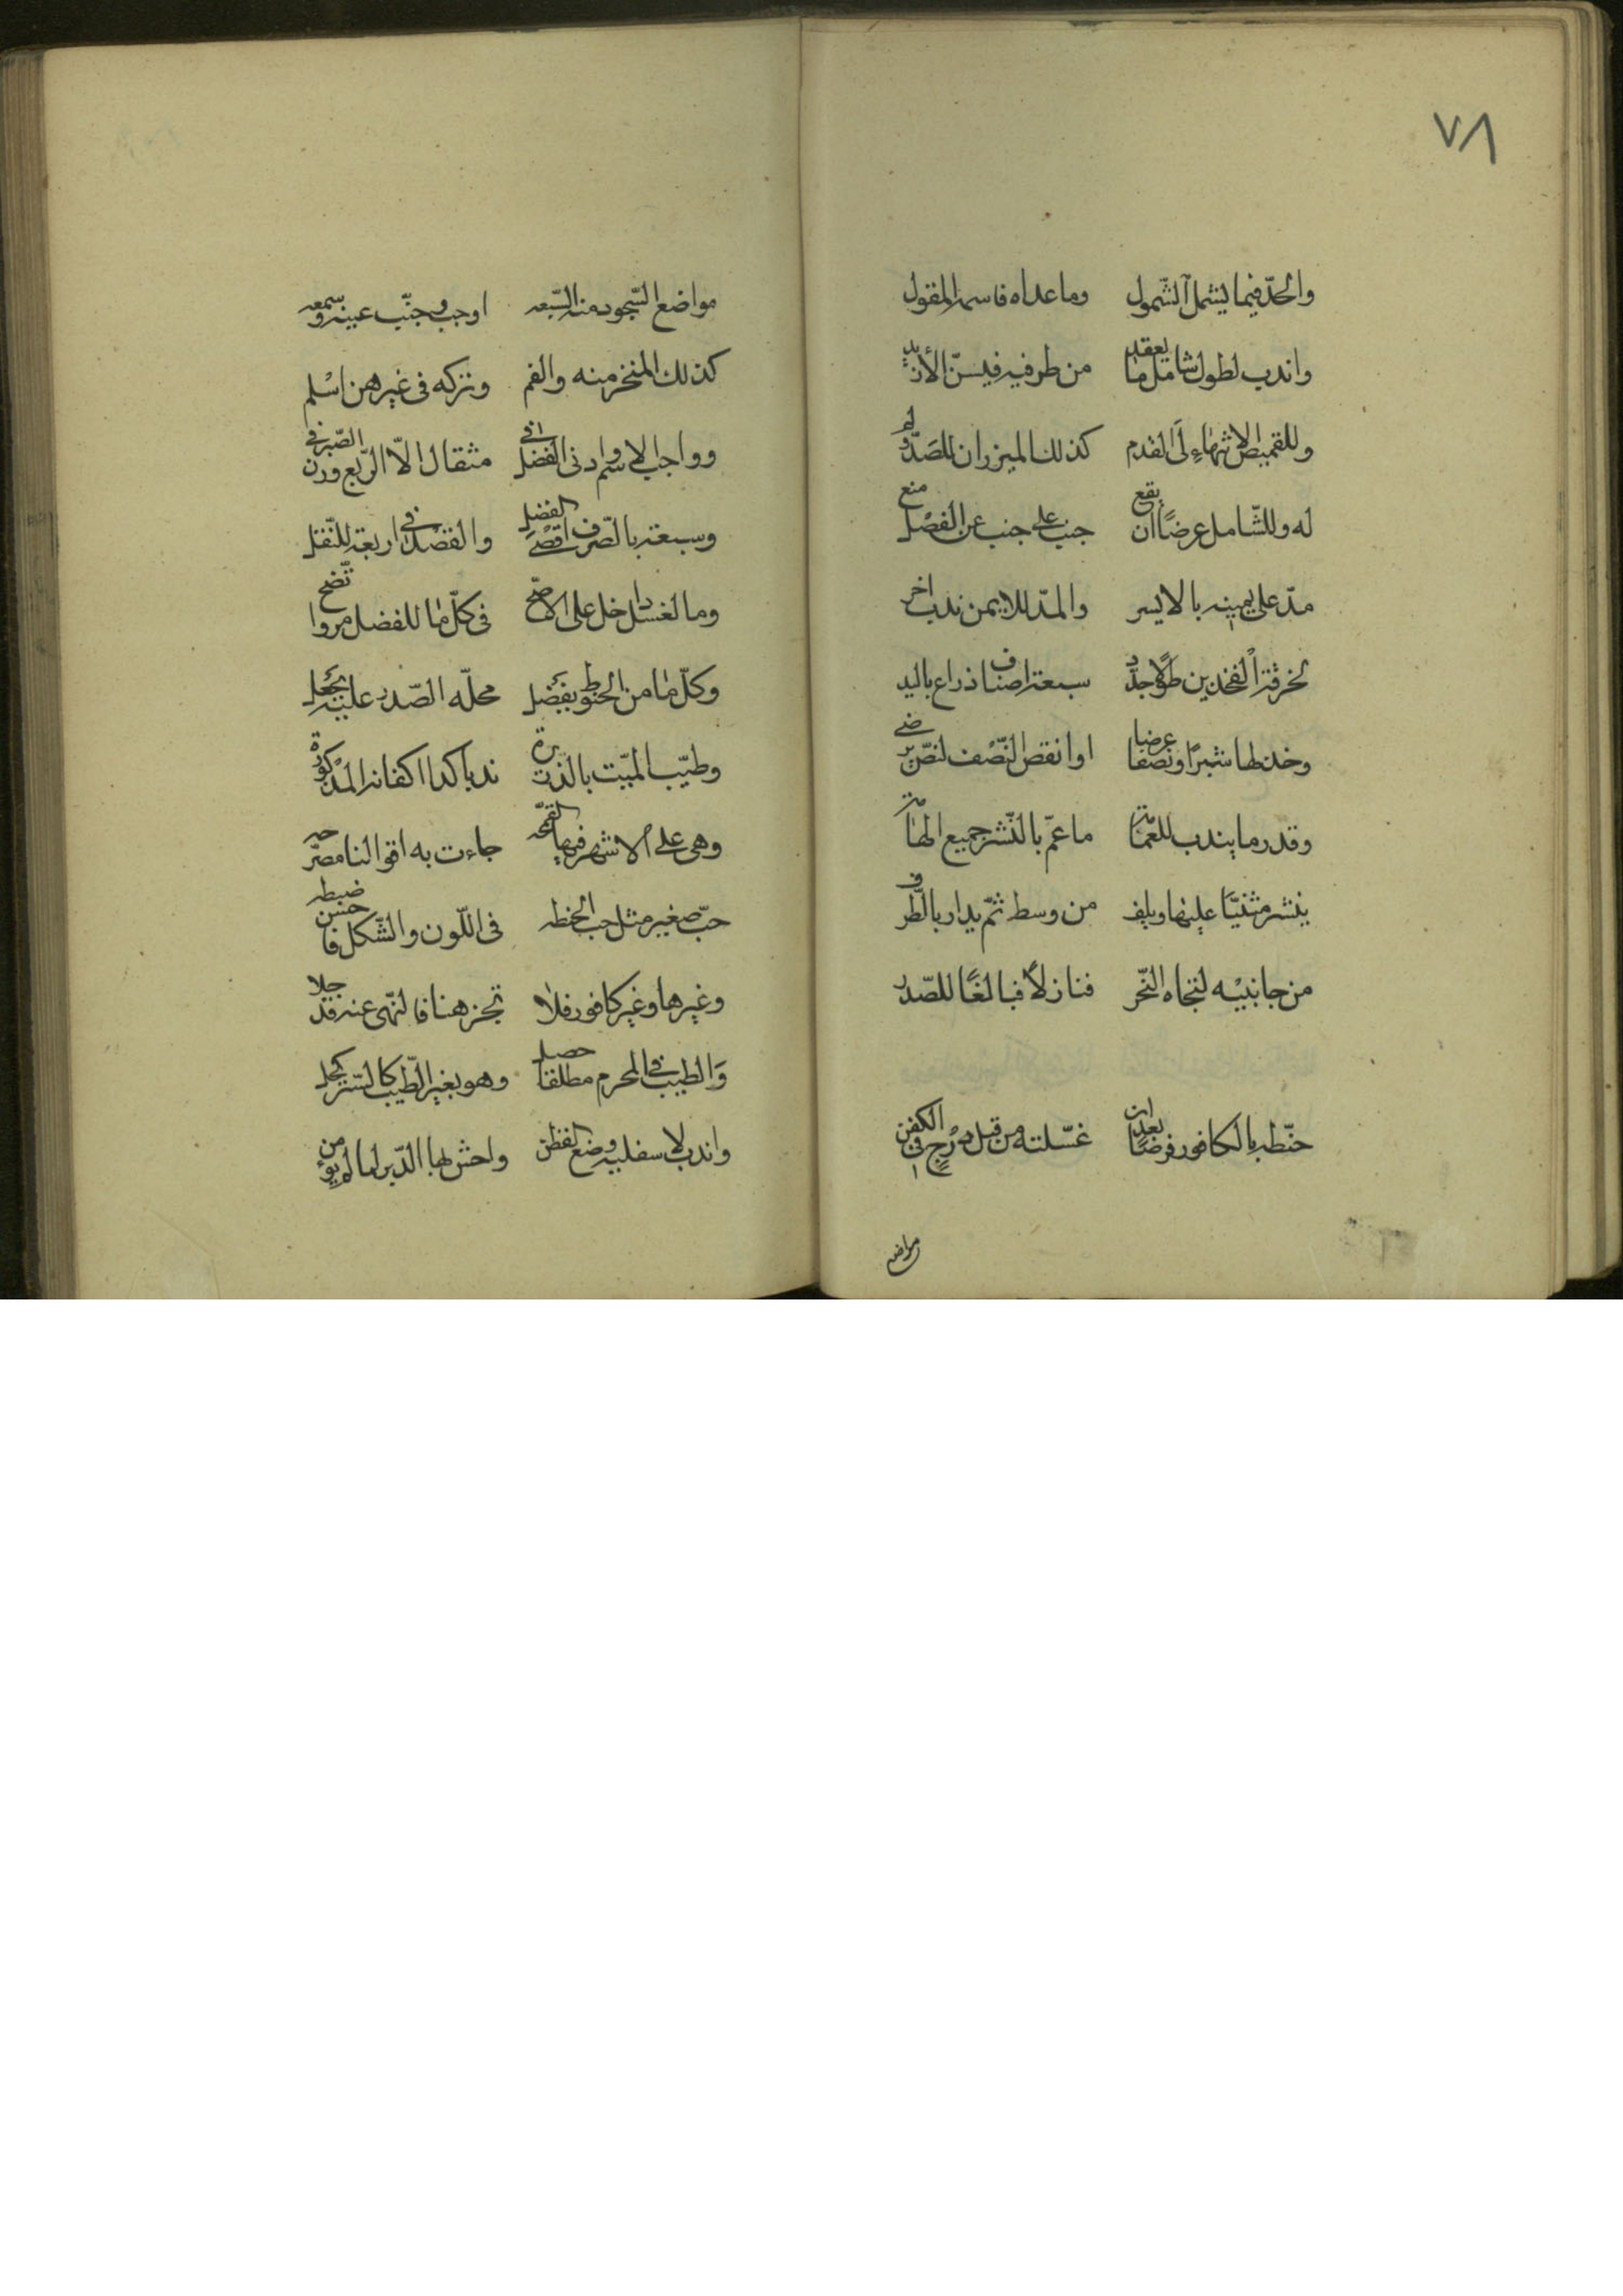 ٧٨
والحدّ فيما يشمل الشّمول وما عداه فاسمه المقول
واندب لطول شامل ما يعقد من طرفيه فيسنّ الأزيد
وللقميص الانتهاء لى القدم كذلك الميزر ان للصدر
له وللشّامل عرضًا ان يقع جنب على جنب عن الفصل منع
مدّ على يمينه بالايسر والمدّ للايمن ندب اخر
لخرقة الفخذين طولا جدّد سبعة اصناف ذراع باليد
وخذ لها شبرًا ونصفا عرضا او انقص النّصف لنصّ يرضى
وقدر ما يندب للعمامة ما عمّ بالنّشر جميع الهامة
ينشر مثنيّا عليها ويلف من وسط ثمّ يدار بالطّرف
من جانبيه لتجاه النّحر فنازلاً فبالغًا للصّدر
حنّطه بالكافور فرضًا بعد ان غسّلته من قبل درج في الكفن
مواضع
مواضع السّجود منه السّبعه اوجب وجنّب عينه وسمعه
كذلك المنخر منه والفم وتركه في غيرهن اسلم
وواجب الاسم وادنى الفضل في مثقال الّا الرّبع وزن الصّيرفي
وسبعة بالصّرف اقصى الفضل والفضل في اربعة للنّقل
وما لغسل داخل على الاصّح في كلّ ما للفضل مروا تّضح
وكلّ ما من الحنوط يفضل محلّه الصّدر عليه يجعل
وطيّب الميّت بالذّريرة ندبا كذا اكفانه المذكورة
وهي على الاشهر فيها القمّحه جاءت به اقوالنا مصرّحه
حبّ صغير مثل حب الحنطه في اللّون والشّكل فاحسن ضبطه
وغيرها وغير كافور فلا تجز هنا فالنّهي عنه قد جلا
والطيب في المحرم مطلقا حصل وهو بغير الطّيب كالستر كمل
واندب لاسفليه وضع القطن واحش بها الدّبر لما لم يؤمن